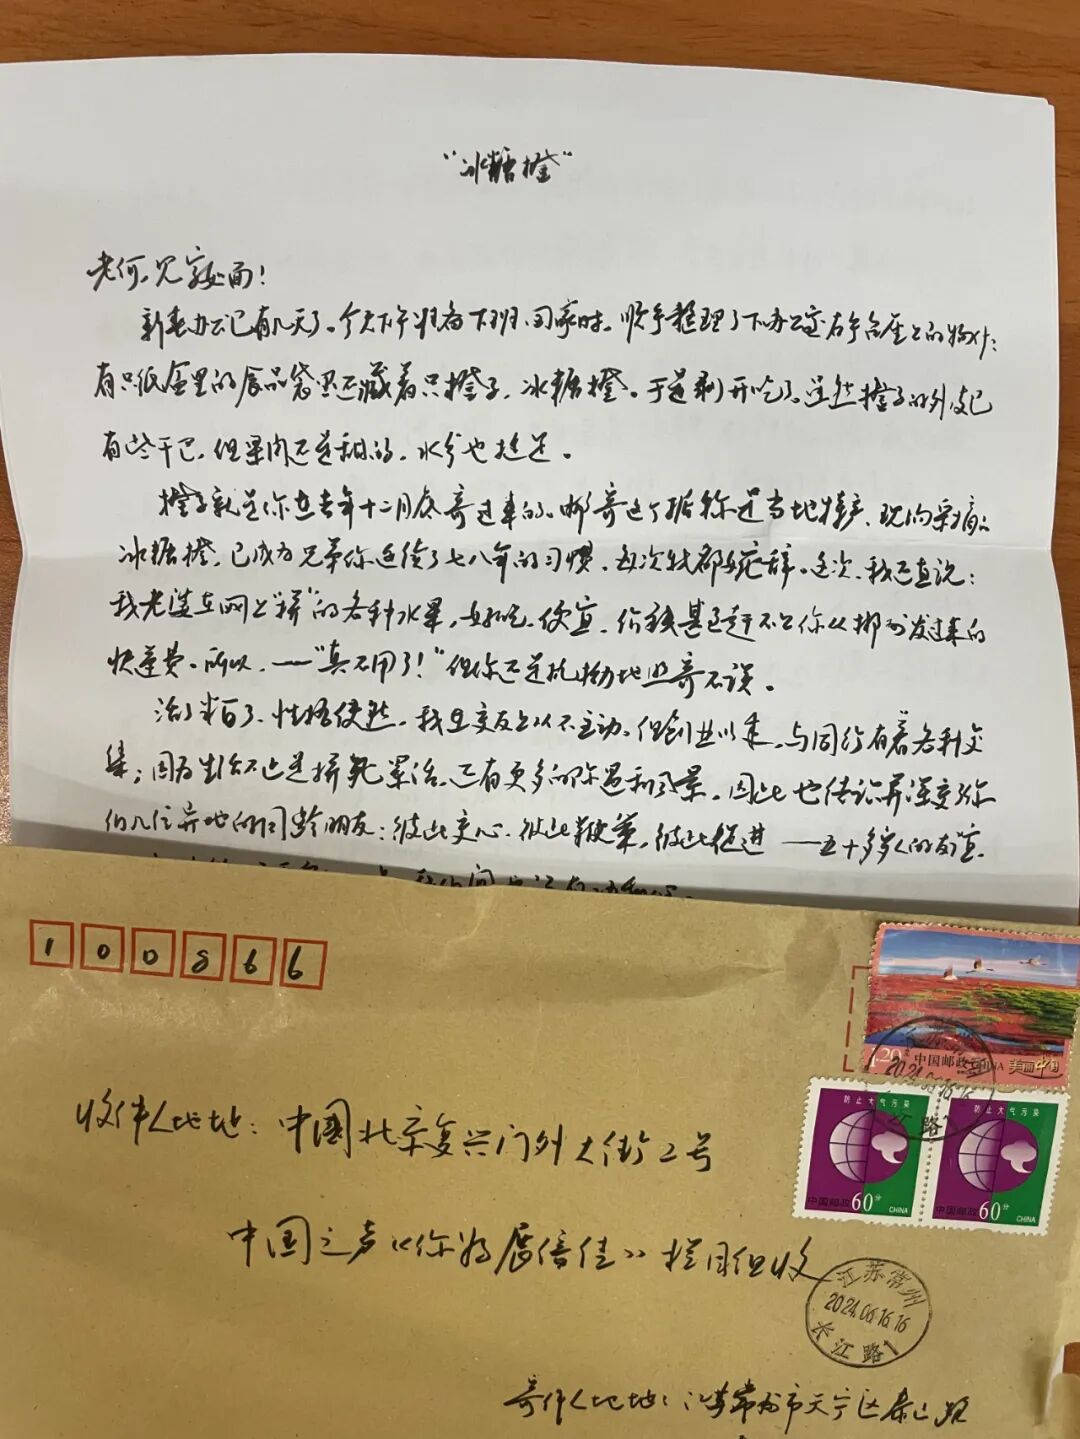 “冰糖橙”
老何,见字如面!
新春办公已有几天了。今天下午准备下班回家时,顺手整理了下办公室右手台座上的物什:
有只纸盒里的食品袋里还藏着只橙子,冰糖橙。于是剥开吃了。虽然橙子的外皮已
有些干巴,但果肉还是甜的,水分也挺足。
橙子就是你在去年十二月底寄过来的。邮寄这个据称是当地特产、现向采摘的
冰糖橙,已成为兄弟你连续了七八年的习惯,每次我都婉辞。这次,我还直说:
我老婆在网上“拼”的各种水果,好吃、便宜,价钱甚至赶不上你从郴州发过来的
快递费。所以,——“真不用了!”但你还是执拗地照寄不误。
活了半百了,性格使然,我在交友上从不主动。但创业以来,与同行有着各种交
集;因为生活不止是拼死累活,还有更多的际遇和风景。因此也结识并深交了你
们几位异地的同龄朋友:彼此交心、彼此鞭策,彼此促进——五十多岁人的友谊,
100866
收件人地址:中国北京复兴门外大街2号
中国之声《你好展信佳》栏目组收
寄件人地址:江苏常州市天宁区泰山路
1.20
中国邮政 CHINA 美丽中国
防止大气污染
中国邮政 60分 CHINA
防止大气污染
中国邮政 60分 CHINA
江苏常州
2024.06.16.16
长江路